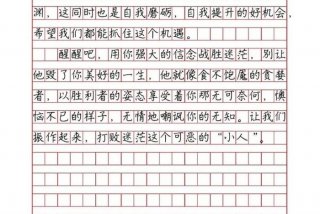 渊，这同时也是自我磨砺，自我提升的好机会，
希望我们都能抓住这个机遇。
醒醒吧，用你强大的信念战胜迷茫，别让
他毁了你美好的一生，他就像食不饱餍的贪婪
者，以胜利者的姿态享受着你那无可奈何，懊
恼不已的样子，无情地嘲讽你的无知。让我们
振作起来，打败迷茫这个可恶的“小人”。